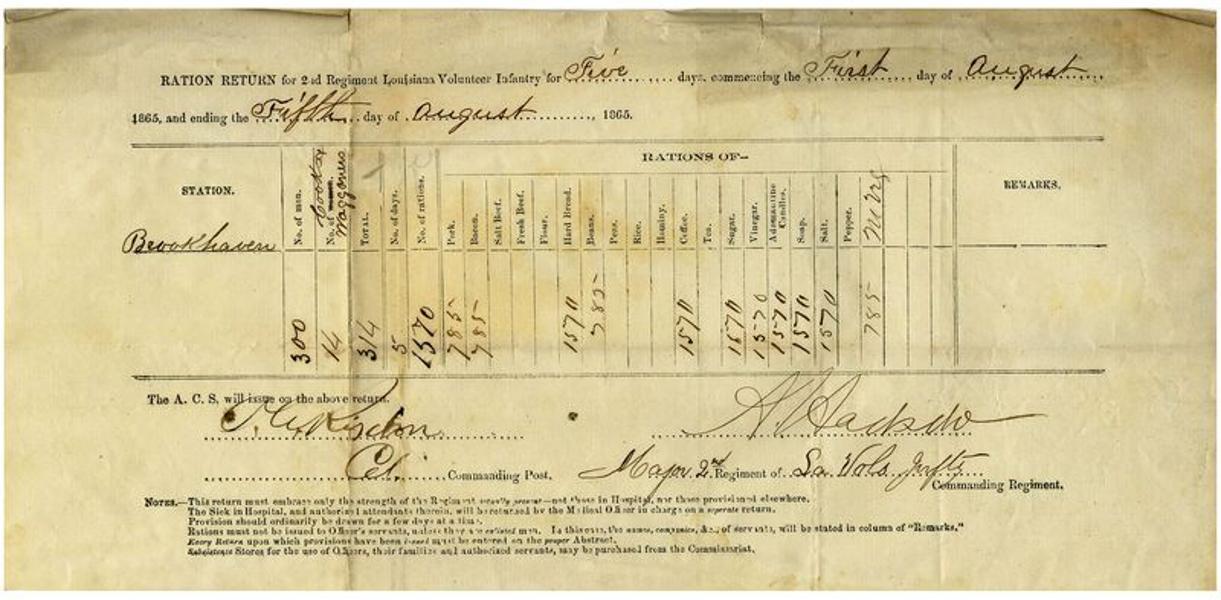 RATION RETURN for 2nd Regiment Louisiana Volunteer Infantry for Five days, commencing the First day of August
1865, and ending the Fifth day of August, 1865.
RATIONS OF—
STATION. No. of men. No. of Cooks & Waggoners TOTAL. No. of days. No. of rations. Pork. Bacon. Salt Beef. Fresh Beef. Flour. Hard Bread. Beans. Peas. Rice. Hominy. Coffee. Tea. Sugar. Vinegar. Adamantine Candles. Soap. Salt. Pepper. REMARKS.
Brookhaven
300 14 314 5 1570 785 785 1570 785 1570 1570 1570 1570 1570 1570 785
The A. C. S. will issue on the above return.
Col. Commanding Post. Major 2nd Regiment of La Vols Infty
Commanding Regiment.
NOTES.—This return must embrace only the strength of the Regiment actually present—not those in Hospital, nor those provisioned elsewhere.
The Sick in Hospital, and authorized attendants therein, will be returned by the Medical Officer in charge on a separate return.
Provision should ordinarily be drawn for a few days at a time.
Rations must not be issued to Officer's servants, unless they are enlisted men. In this case, the names, companies, &c., of servants, will be stated in column of "Remarks."
Every Return upon which provisions have been issued must be entered on the proper Abstract.
Subsistence Stores for the use of Officers, their families and authorized servants, may be purchased from the Commissariat.